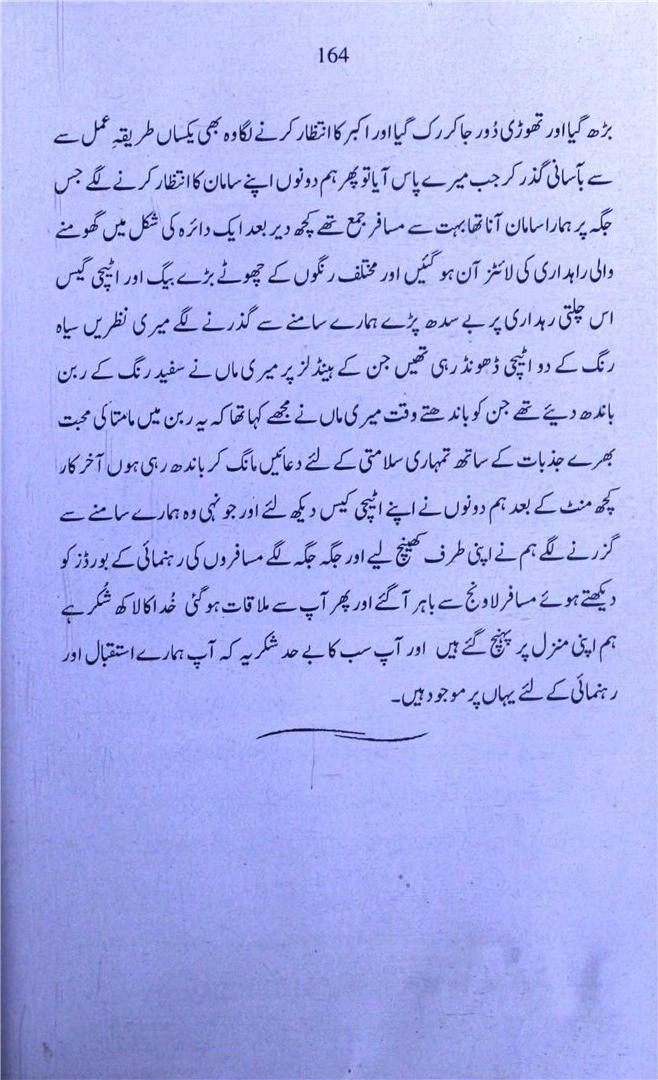 164
بڑھ گیا اور تھوڑی دُور جا کر رک گیا اور اکبر کا انتظار کرنے لگا وہ بھی یکساں طریقہِ عمل سے
سے بآسانی گذر کر جب میرے پاس آیا تو پھر ہم دونوں اپنے سامان کا انتظار کرنے لگے جس
جگہ پر ہمارا سامان آنا تھا بہت سے مسافر جمع تھے کچھ دیر بعد ایک دائرہ کی شکل میں گھومنے
والی راہداری کی لائنز آن ہو گئیں اور مختلف رنگوں کے چھوٹے بڑے بیگ اور اٹیچی کیس
اس چلتی رہداری پر بے سدھ پڑے ہمارے سامنے سے گذرنے لگے میری نظریں سیاہ
رنگ کے دو اٹیچی ڈھونڈ رہی تھیں جن کے ہینڈلز پر میری ماں نے سفید رنگ کے ربن
باندھ دیئے تھے جن کو باندھتے وقت میری ماں نے مجھے کہا تھا کہ یہ ربن میں مامتا کی محبت
بھرے جذبات کے ساتھ تمہاری سلامتی کے لئے دعائیں مانگ کر باندھ رہی ہوں آخر کار
کچھ منٹ کے بعد ہم دونوں نے اپنے اٹیچی کیس دیکھ لئے اور جونہی وہ ہمارے سامنے سے
گزرنے لگے ہم نے اپنی طرف کھینچ لیے اور جگہ جگہ لگے مسافروں کی رہنمائی کے بورڈز کو
دیکھتے ہوئے مسافر لاونج سے باہر آ گئے اور پھر آپ سے ملاقات ہو گئی خُدا کا لاکھ شُکر ہے
ہم اپنی منزل پر پہنچ گئے ہیں اور آپ سب کا بے حد شکریہ کہ آپ ہمارے استقبال اور
رہنمائی کے لئے یہاں پر موجود ہیں۔